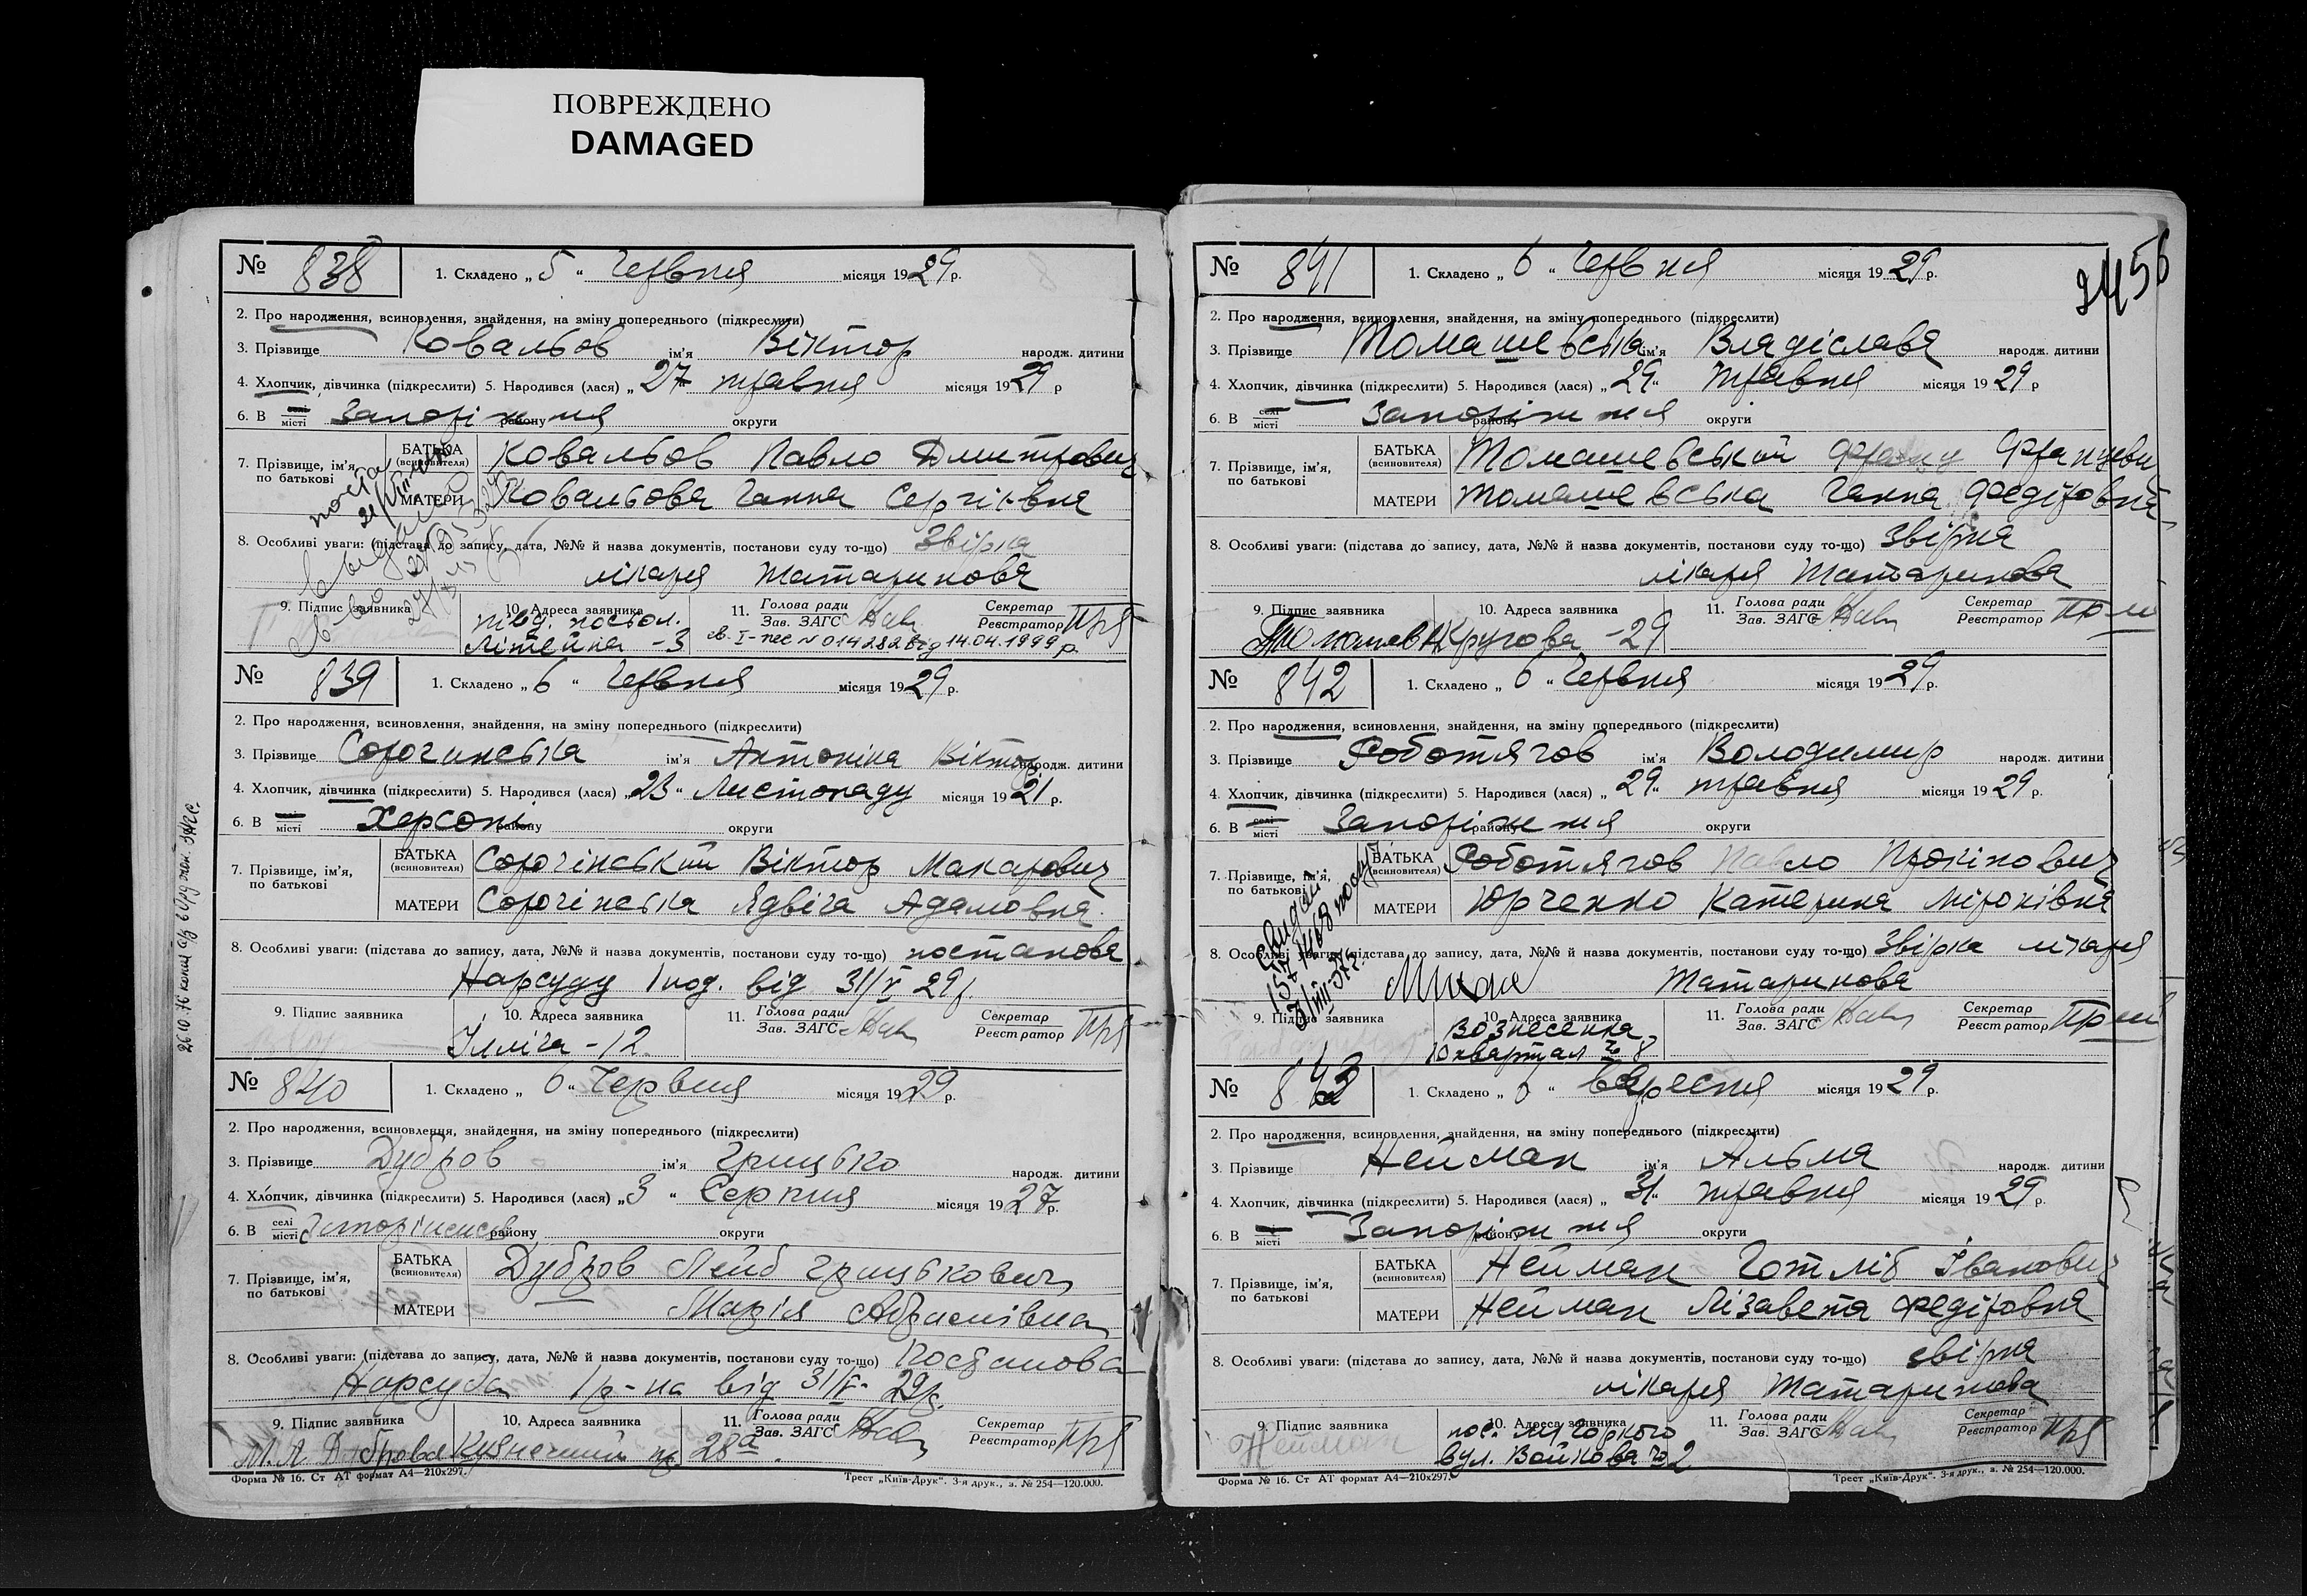 ПОВРЕЖДЕНО
DAMAGED
№ 838
1. Складено „ 5 “ Червня місяця 1929 р.
2. Про народження, всиновлення, знайдення, на зміну попереднього (підкреслити)
3. Прізвище Ковальов ім’я Віктор народж. дитини
4. Хлопчик, дівчинка (підкреслити) 5. Народився (лася) „ 27 травня місяця 1929 р
6. В селі місті Запоріжжя району округи
7. Прізвище, ім’я, по батькові
БАТЬКА (всиновителя) Ковальов Павло Дмитрович
МАТЕРИ Ковальова Ганна Сергіївна
8. Особливі уваги: (підстава до запису, дата, №№ й назва документів, постанови суду то-що) Звірка
лікаря Татаринова
9. Підпис заявника
10. Адреса заявника
Літейна -3
11. Голова ради Зав. ЗАГС
Секретар Реєстратор
св. I-пес № 014282 від 14.04.1999 р.
№ 839
1. Складено „ 6 “ Червня місяця 1929 р.
2. Про народження, всиновлення, знайдення, на зміну попереднього (підкреслити)
3. Прізвище Сорочинська ім’я Антоніна Віктор. народж. дитини
4. Хлопчик, дівчинка (підкреслити) 5. Народився (лася) „ 23 “ Листопаду місяця 1921 р.
6. В селі місті Херсоні району округи
7. Прізвище, ім’я, по батькові
БАТЬКА (всиновителя) Сорочінський Віктор Макарович
МАТЕРИ Сорочінська Ядвіга Адамовна.
8. Особливі уваги: (підстава до запису, дата, №№ й назва документів, постанови суду то-що) постанова
Нарсуду 1 под. від 31/V 29р.
9. Підпис заявника
10. Адреса заявника
Ілліча -12.
11. Голова ради Зав. ЗАГС
Секретар Реєстратор
№ 840
1. Складено „ 6 “ Червня місяця 1929 р.
2. Про народження, всиновлення, знайдення, на зміну попереднього (підкреслити)
3. Прізвище Дубров ім’я Грицько народж. дитини
4. Хлопчик, дівчинка (підкреслити) 5. Народився (лася) „ 3 “ Серпня місяця 1927 р.
6. В селі місті району округи
7. Прізвище, ім’я, по батькові
БАТЬКА (всиновителя) Дубров Лейб Грицькович
МАТЕРИ Марія Абрамівна
8. Особливі уваги: (підстава до запису, дата, №№ й назва документів, постанови суду то-що) Постанова
Нарсуда 1 р-на від 31/V- 29р.
9. Підпис заявника
М. Л. Дуброва
10. Адреса заявника
Кузнечний пр. 28а
11. Голова ради Зав. ЗАГС
Секретар Реєстратор
Форма № 16. Ст АТ формат А4—210х297.
Трест „Київ-Друк“. 3-я друк., з. № 254—120.000.
№ 841
1. Складено „ 6 “ Червня місяця 1929 р.
2. Про народження, всиновлення, знайдення, на зміну попереднього (підкреслити)
3. Прізвище Томашевська ім’я Владіслава народж. дитини
4. Хлопчик, дівчинка (підкреслити) 5. Народився (лася) „ 29 “ травня місяця 1929 р
6. В селі місті Запоріжжя району округи
7. Прізвище, ім’я, по батькові
БАТЬКА (всиновителя) Томашевський Франц Францеви
МАТЕРИ Томашевська Ганна Федіровна
8. Особливі уваги: (підстава до запису, дата, №№ й назва документів, постанови суду то-що) Звірка
лікаря Татаринова
9. Підпис заявника
10. Адреса заявника
Кругова -29
11. Голова ради Зав. ЗАГС
Секретар Реєстратор
№ 842
1. Складено „ 6 “ Червня місяця 1929 р.
2. Про народження, всиновлення, знайдення, на зміну попереднього (підкреслити)
3. Прізвище Роботягов ім’я Володимир народж. дитини
4. Хлопчик, дівчинка (підкреслити) 5. Народився (лася) „ 29 “ травня місяця 1929 р.
6. В селі місті Запоріжжя району округи
7. Прізвище, ім’я, по батькові
БАТЬКА (всиновителя) Роботягов Павло Прокінович
МАТЕРИ Юрченко Катерина Міронівна
8. Особливі уваги: (підстава до запису, дата, №№ й назва документів, постанови суду то-що) Звірка лікаря
Татаринова
9. Підпис заявника
10. Адреса заявника
Вознесенка
10 квартал № 8
11. Голова ради Зав. ЗАГС
Секретар Реєстратор
№ 843
1. Складено „ 6 “ вересня місяця 1929 р.
2. Про народження, всиновлення, знайдення, на зміну попереднього (підкреслити)
3. Прізвище Нейман ім’я Альма народж. дитини
4. Хлопчик, дівчинка (підкреслити) 5. Народився (лася) „ 31 “ травня місяця 1929 р.
6. В селі місті Запоріжжя району округи
7. Прізвище, ім’я, по батькові
БАТЬКА (всиновителя) Нейман Готліб Іванович
МАТЕРИ Нейман Лізавета Федіровна
8. Особливі уваги: (підстава до запису, дата, №№ й назва документів, постанови суду то-що) звірка
лікаря Татаринова
9. Підпис заявника
Нейман
10. Адреса заявника
пос. Горького
вул. Войкова № 2
11. Голова ради Зав. ЗАГС
Секретар Реєстратор
Форма № 16. Ст АТ формат А4—210х297.
Трест „Київ-Друк“. 3-я друк., з. № 254—120.000.